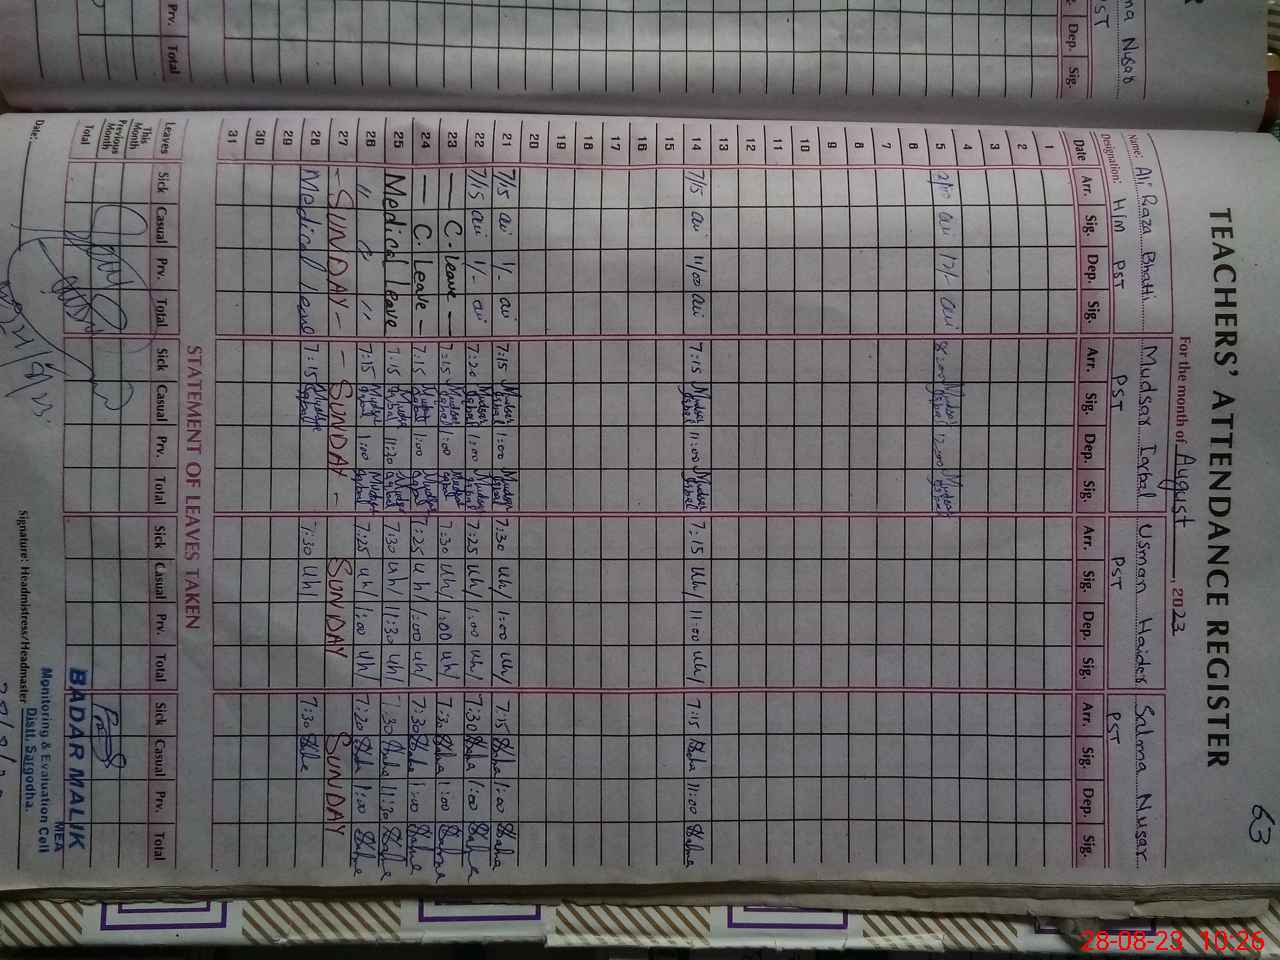 63
TEACHERS' ATTENDANCE REGISTER
For the month of August, 2023
Name: Ali Raza Bhatti Mudsar Iqbal Usman Haider Salma Nusar
Designation: H/M PST PST PST PST
Date Arr. Sig. Dep. Sig. Arr. Sig. Dep. Sig. Arr. Sig. Dep. Sig. Arr. Sig. Dep. Sig.
1
2
3
4
5 12/- 8:00 Mudsar Iqbal 12:00 Mudsar Iqbal
6
7
8
9
10
11
12
13
14 7/15 11/00 7:15 Mudsar Iqbal 11:00 Mudsar Iqbal 7:15 Uh/ 11:00 Uh/ 7:15 11:00
15
16
17
18
19
20
21 7/15 1/- 7:15 Mudsar Iqbal 1:00 Mudsar Iqbal 7:30 Uh/ 1:00 Uh/ 7:15 1:00
22 7/15 1/- 7:20 Mudsar Iqbal 1:00 Mudsar Iqbal 7:25 Uh/ 1:00 Uh/ 7:30 1:00
23 — C. Leave — 7:15 Mudsar Iqbal 1:00 Mudsar Iqbal 7:30 Uh/ 1:00 Uh/ 7:30 1:00
24 — C. Leave — 7:15 Mudsar Iqbal 1:00 Mudsar Iqbal 7:25 Uh/ 1:00 Uh/ 7:30 1:00
25 Medical leave 7:15 Mudsar Iqbal 11:30 Mudsar Iqbal 7:30 Uh/ 11:30 Uh/ 7:30 11:30
26 " " " 7:15 Mudsar Iqbal 1:00 Mudsar Iqbal 7:25 Uh/ 1:00 Uh/ 7:20 1:00
27 - SUNDAY - - SUNDAY - SUNDAY SUNDAY
28 Medical leave 7:15 Mudsar Iqbal 7:30 Uh/ 7:30
29
30
31
STATEMENT OF LEAVES TAKEN
Leaves Sick Casual Prv. Total Sick Casual Prv. Total Sick Casual Prv. Total Sick Casual Prv. Total
This Month
Previous Month
Total
BADAR MALIK
MEA
Monitoring & Evaluation Cell
Distt. Sargodha.
Date:
Signature: Headmistress/Headmaster
21/8/23
Nusar
ST
Dep. Sig.
Prv. Total
28-08-23 10:26